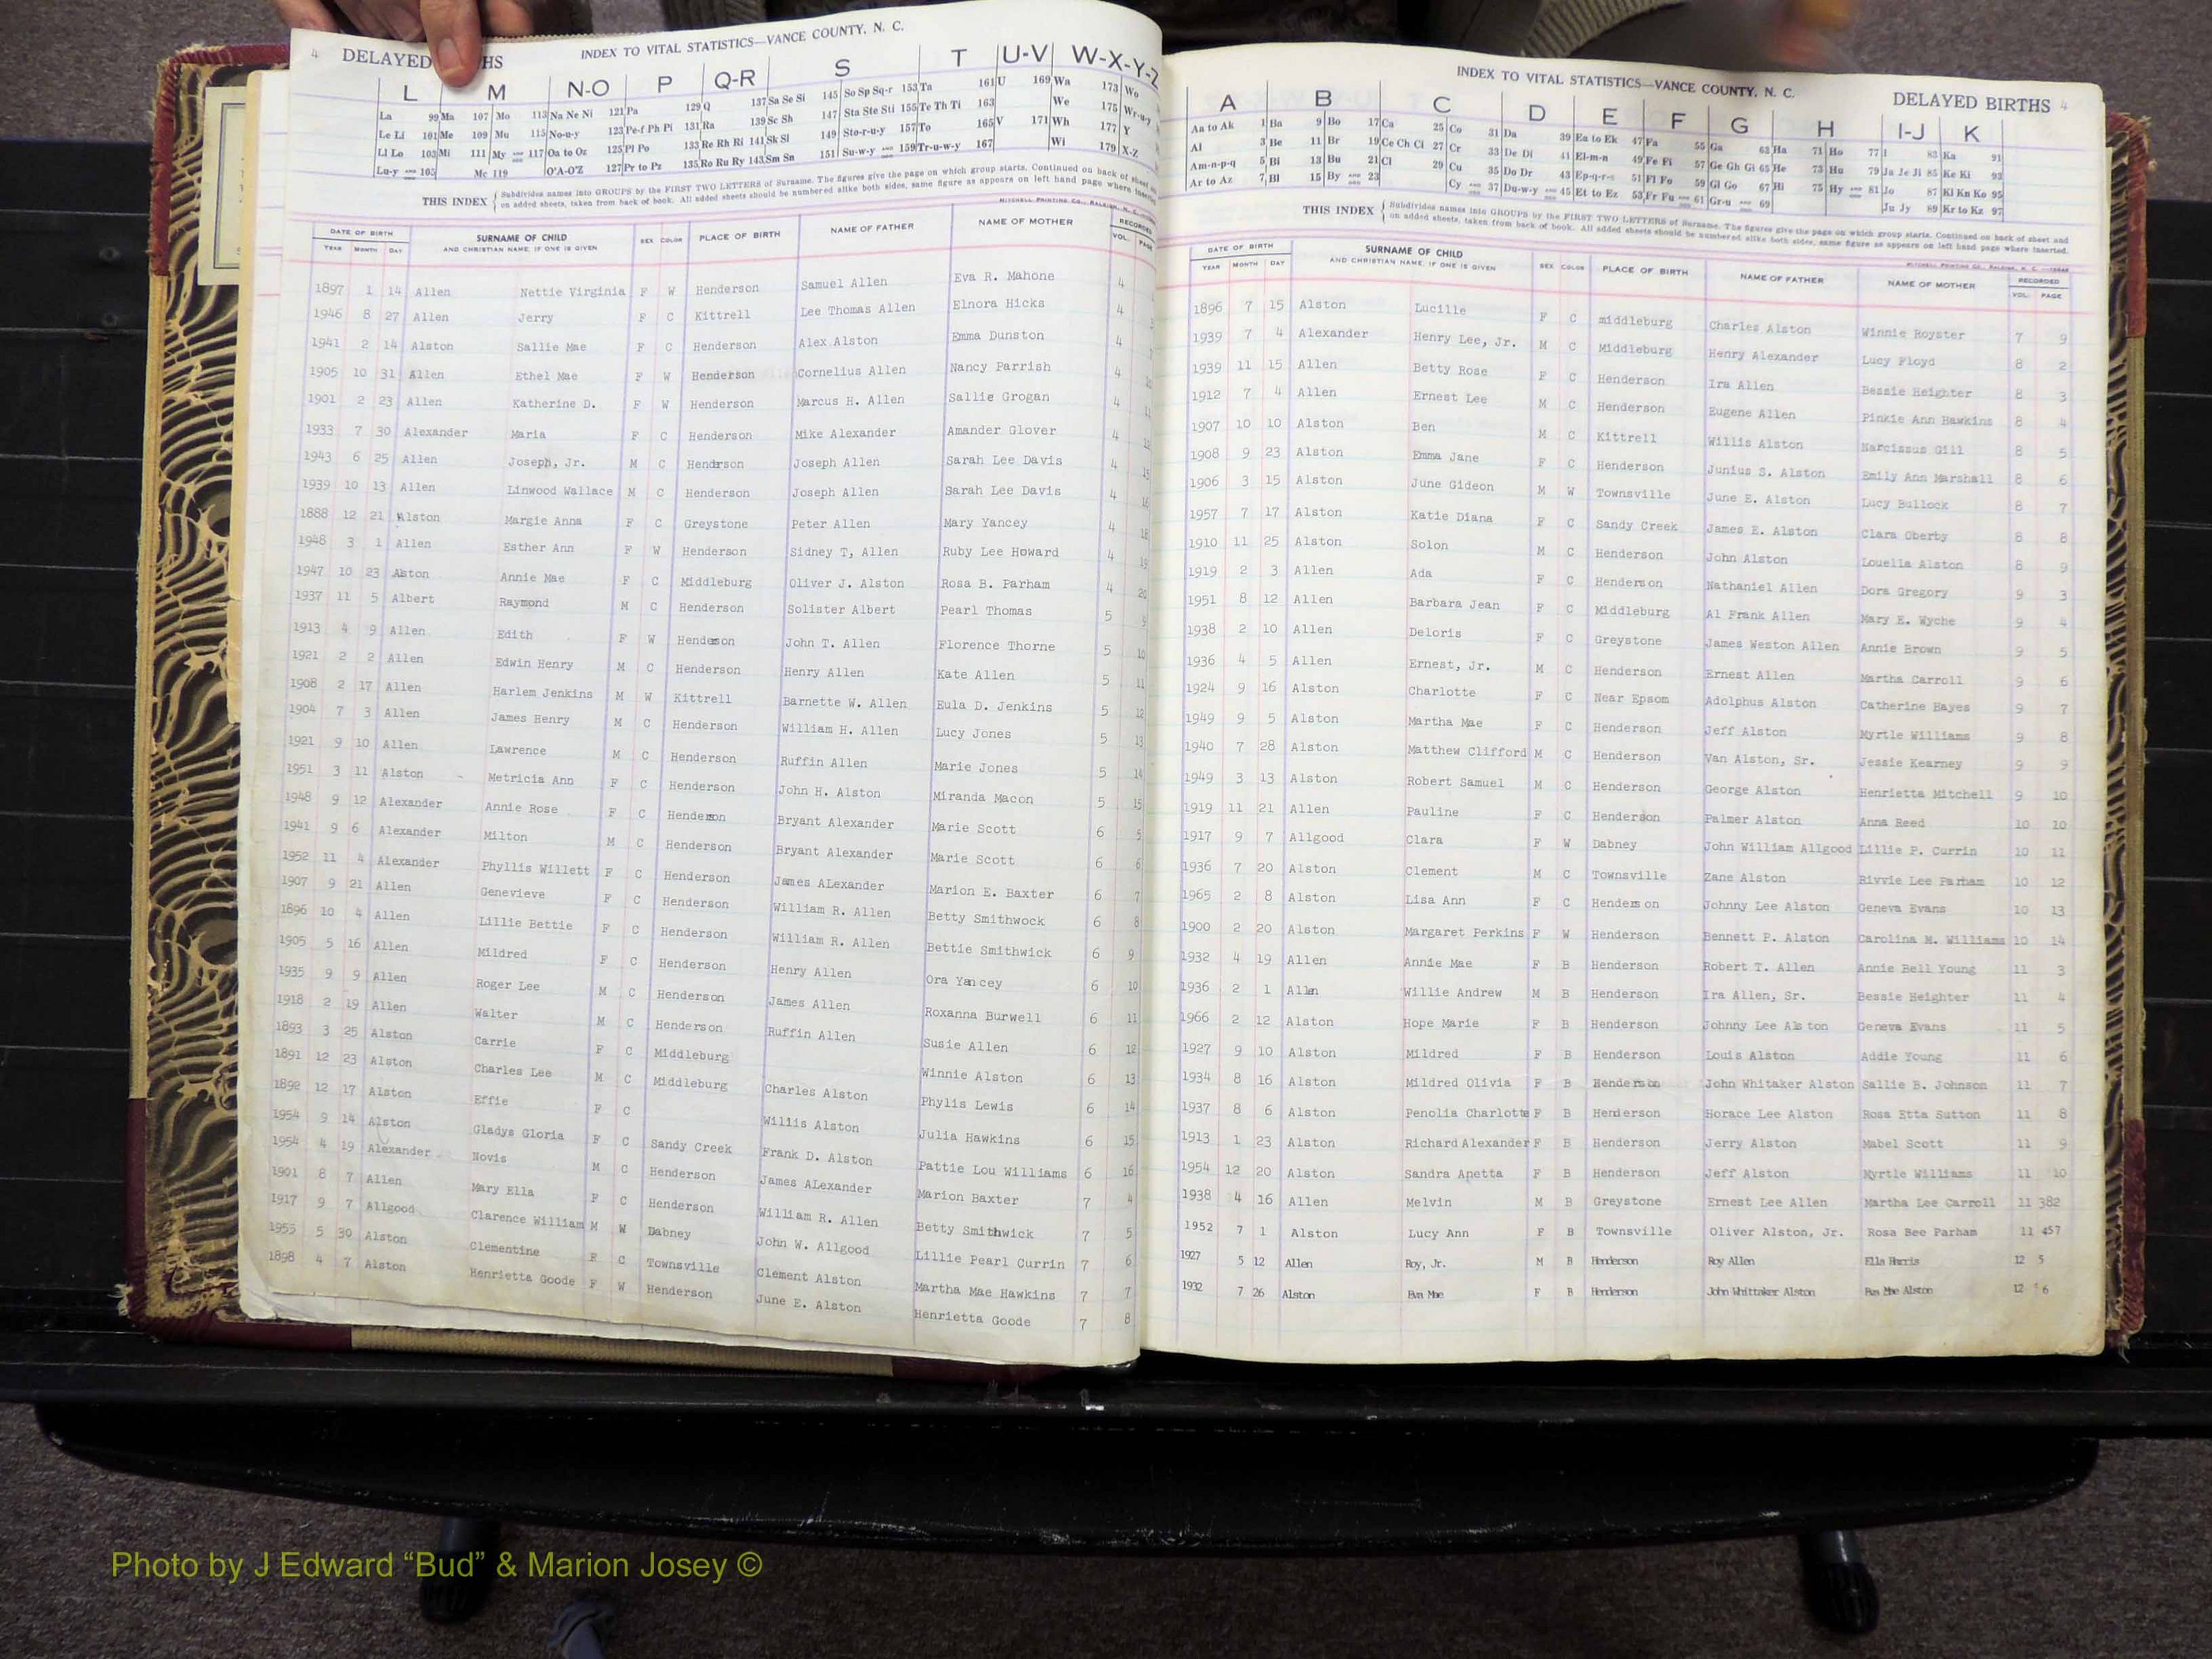 4 DELAYED HS INDEX TO VITAL STATISTICS—VANCE COUNTY, N. C.
L M N-O P Q-R S T U-V W-X-Y-Z
La 99 Ma 107 Mo 113 Na Ne Ni 121 Pa 129 Q 137 Sa Se Si 145 So Sp Sq-r 153 Ta 161 U 169 Wa 173 Wo
Le Li 101 Me 109 Mu 115 No-u-y 123 Pe-f Ph Pi 131 Ra 139 Sc Sh 147 Sta Ste Sti 155 Te Th Ti 163 We 175 Wr-u-y
Ll Lo 103 Mi 111 My AND 117 Oa to Oz 125 Pl Po 133 Re Rh Ri 141 Sk Sl 149 Sto-r-u-y 157 To 165 V 171 Wh 177 Y
Lu-y AND 105 Mc 119 O'A-O'Z 127 Pr to Pz 135 Ro Ru Ry 143 Sm Sn 151 Su-w-y AND 159 Tr-u-w-y 167 Wi 179 X-Z
THIS INDEX { Subdivides names into GROUPS by the FIRST TWO LETTERS of Surname. The figures give the page on which group starts. Continued on back of sheet
on added sheets, taken from back of book. All added sheets should be numbered alike both sides, same figure as appears on left hand page where inserted.
MITCHELL PRINTING CO., RALEIGH, N. C.
DATE OF BIRTH SURNAME OF CHILD SEX COLOR PLACE OF BIRTH NAME OF FATHER NAME OF MOTHER RECORDED
YEAR MONTH DAY AND CHRISTIAN NAME, IF ONE IS GIVEN VOL. PAGE
1897 1 14 Allen Nettie Virginia F W Henderson Samuel Allen Eva R. Mahone 4
1946 8 27 Allen Jerry F C Kittrell Lee Thomas Allen Elnora Hicks 4
1941 2 14 Alston Sallie Mae F C Henderson Alex Alston Emma Dunston 4
1905 10 31 Allen Ethel Mae F W Henderson Cornelius Allen Nancy Parrish 4
1901 2 23 Allen Katherine D. F W Henderson Marcus H. Allen Sallie Grogan 4
1933 7 30 Alexander Maria F C Henderson Mike Alexander Amander Glover 4 12
1943 6 25 Allen Joseph, Jr. M C Henderson Joseph Allen Sarah Lee Davis 4 15
1939 10 13 Allen Linwood Wallace M C Henderson Joseph Allen Sarah Lee Davis 4 16
1888 12 21 Alston Margie Anna F C Greystone Peter Allen Mary Yancey 4 18
1948 3 1 Allen Esther Ann F W Henderson Sidney T, Allen Ruby Lee Howard 4 19
1947 10 23 Alston Annie Mae F C Middleburg Oliver J. Alston Rosa B. Parham 4 20
1937 11 5 Albert Raymond M C Henderson Solister Albert Pearl Thomas 5 9
1913 4 9 Allen Edith F W Henderson John T. Allen Florence Thorne 5 10
1921 2 2 Allen Edwin Henry M C Henderson Henry Allen Kate Allen 5 11
1908 2 17 Allen Harlem Jenkins M W Kittrell Barnette W. Allen Eula D. Jenkins 5 12
1904 7 3 Allen James Henry M C Henderson William H. Allen Lucy Jones 5 13
1921 9 10 Allen Lawrence M C Henderson Ruffin Allen Marie Jones 5 14
1951 3 11 Alston Metricia Ann F C Henderson John H. Alston Miranda Macon 5 15
1948 9 12 Alexander Annie Rose F C Henderson Bryant Alexander Marie Scott 6 5
1941 9 6 Alexander Milton M C Henderson Bryant Alexander Marie Scott 6 6
1952 11 4 Alexander Phyllis Willett F C Henderson James ALexander Marion E. Baxter 6 7
1907 9 21 Allen Genevieve F C Henderson William R. Allen Betty Smithwock 6 8
1896 10 4 Allen Lillie Bettie F C Henderson William R. Allen Bettie Smithwick 6 9
1905 5 16 Allen Mildred F C Henderson Henry Allen Ora Yancey 6 10
1935 9 9 Allen Roger Lee M C Henderson James Allen Roxanna Burwell 6 11
1918 2 19 Allen Walter M C Henderson Ruffin Allen Susie Allen 6 12
1893 3 25 Alston Carrie F C Middleburg Winnie Alston 6 13
1891 12 23 Alston Charles Lee M C Middleburg Charles Alston Phylis Lewis 6 14
1892 12 17 Alston Effie F C Willis Alston Julia Hawkins 6 15
1954 9 14 Alston Gladys Gloria F C Sandy Creek Frank D. Alston Pattie Lou Williams 6 16
1954 4 19 Alexander Novis M C Henderson James ALexander Marion Baxter 7 4
1901 8 7 Allen Mary Ella F C Henderson William R. Allen Betty Smithwick 7 5
1917 9 7 Allgood Clarence William M W Dabney John W. Allgood Lillie Pearl Currin 7 6
1953 5 30 Alston Clementine F C Townsville Clement Alston Martha Mae Hawkins 7 7
1898 4 7 Alston Henrietta Goode F W Henderson June E. Alston Henrietta Goode 7 8
INDEX TO VITAL STATISTICS—VANCE COUNTY, N. C. DELAYED BIRTHS 4
A B C D E F G H I-J K
Aa to Ak 1 Ba 9 Bo 17 Ca 25 Co 31 Da 39 Ea to Ek 47 Fa 55 Ga 63 Ha 71 Ho 77 I 83 Ka 91
Al 3 Be 11 Br 19 Ce Ch Ci 27 Cr 33 De Di 41 El-m-n 49 Fe Fi 57 Ge Gh Gi 65 He 73 Hu 79 Ja Je Ji 85 Ke Ki 93
Am-n-p-q 5 Bi 13 Bu 21 Cl 29 Cu 35 Do Dr 43 Ep-q-r-s 51 Fl Fo 59 Gl Go 67 Hi 75 Hy AND 81 Jo 87 Kl Kn Ko 95
Ar to Az 7 Bl 15 By AND 23 Cy AND 37 Du-w-y AND 45 Et to Ez 53 Fr Fu AND 61 Gr-u AND 69 Ju Jy 89 Kr to Kz 97
THIS INDEX { Subdivides names into GROUPS by the FIRST TWO LETTERS of Surname. The figures give the page on which group starts. Continued on back of sheet and
on added sheets, taken from back of book. All added sheets should be numbered alike both sides, same figure as appears on left hand page where inserted.
MITCHELL PRINTING CO., RALEIGH, N. C.
DATE OF BIRTH SURNAME OF CHILD SEX COLOR PLACE OF BIRTH NAME OF FATHER NAME OF MOTHER RECORDED
YEAR MONTH DAY AND CHRISTIAN NAME, IF ONE IS GIVEN VOL. PAGE
1896 7 15 Alston Lucille F C middleburg Charles Alston Winnie Royster 7 9
1939 7 4 Alexander Henry Lee, Jr. M C Middleburg Henry Alexander Lucy Floyd 8 2
1939 11 15 Allen Betty Rose F C Henderson Ira Allen Bessie Heighter 8 3
1912 7 4 Allen Ernest Lee M C Henderson Eugene Allen Pinkie Ann Hawkins 8 4
1907 10 10 Alston Ben M C Kittrell Willis Alston Narcissus Gill 8 5
1908 9 23 Alston Emma Jane F C Henderson Junius S. Alston Emily Ann Marshall 8 6
1906 3 15 Alston June Gideon M W Townsville June E. Alston Lucy Bullock 8 7
1957 7 17 Alston Katie Diana F C Sandy Creek James E. Alston Clara Oberby 8 8
1910 11 25 Alston Solon M C Henderson John Alston Louella Alston 8 9
1919 2 3 Allen Ada F C Henderson Nathaniel Allen Dora Gregory 9 3
1951 8 12 Allen Barbara Jean F C Middleburg Al Frank Allen Mary E. Wyche 9 4
1938 2 10 Allen Deloris F C Greystone James Weston Allen Annie Brown 9 5
1936 4 5 Allen Ernest, Jr. M C Henderson Ernest Allen Martha Carroll 9 6
1924 9 16 Alston Charlotte F C Near Epsom Adolphus Alston Catherine Hayes 9 7
1949 9 5 Alston Martha Mae F C Henderson Jeff Alston Myrtle Williams 9 8
1940 7 28 Alston Matthew Clifford M C Henderson Van Alston, Sr. Jessie Kearney 9 9
1949 3 13 Alston Robert Samuel M C Henderson George Alston Henrietta Mitchell 9 10
1919 11 21 Allen Pauline F C Henderson Palmer Alston Anna Reed 10 10
1917 9 7 Allgood Clara F W Dabney John William Allgood Lillie P. Currin 10 11
1936 7 20 Alston Clement M C Townsville Zane Alston Rivvie Lee Parham 10 12
1965 2 8 Alston Lisa Ann F C Henderson Johnny Lee Alston Geneva Evans 10 13
1900 2 20 Alston Margaret Perkins F W Henderson Bennett P. Alston Carolina M. Williams 10 14
1932 4 19 Allen Annie Mae F B Henderson Robert T. Allen Annie Bell Young 11 3
1936 2 1 Allen Willie Andrew M B Henderson Ira Allen, Sr. Bessie Heighter 11 4
1966 2 12 Alston Hope Marie F B Henderson Johnny Lee Alston Geneva Evans 11 5
1927 9 10 Alston Mildred F B Henderson Louis Alston Addie Young 11 6
1934 8 16 Alston Mildred Olivia F B Henderson John Whitaker Alston Sallie B. Johnson 11 7
1937 8 6 Alston Penolia Charlotte F B Henderson Horace Lee Alston Rosa Etta Sutton 11 8
1913 1 23 Alston Richard Alexander F B Henderson Jerry Alston Mabel Scott 11 9
1954 12 20 Alston Sandra Anetta F B Henderson Jeff Alston Myrtle Williams 11 10
1938 4 16 Allen Melvin M B Greystone Ernest Lee Allen Martha Lee Carroll 11 382
1952 7 1 Alston Lucy Ann F B Townsville Oliver Alston, Jr. Rosa Bee Parham 11 457
1927 5 12 Allen Roy, Jr. M B Henderson Roy Allen Ella Harris 12 5
1932 7 26 Alston Eva Mae F B Henderson John Whittaker Alston Eva Mae Alston 12 6
Photo by J Edward “Bud” & Marion Josey ©